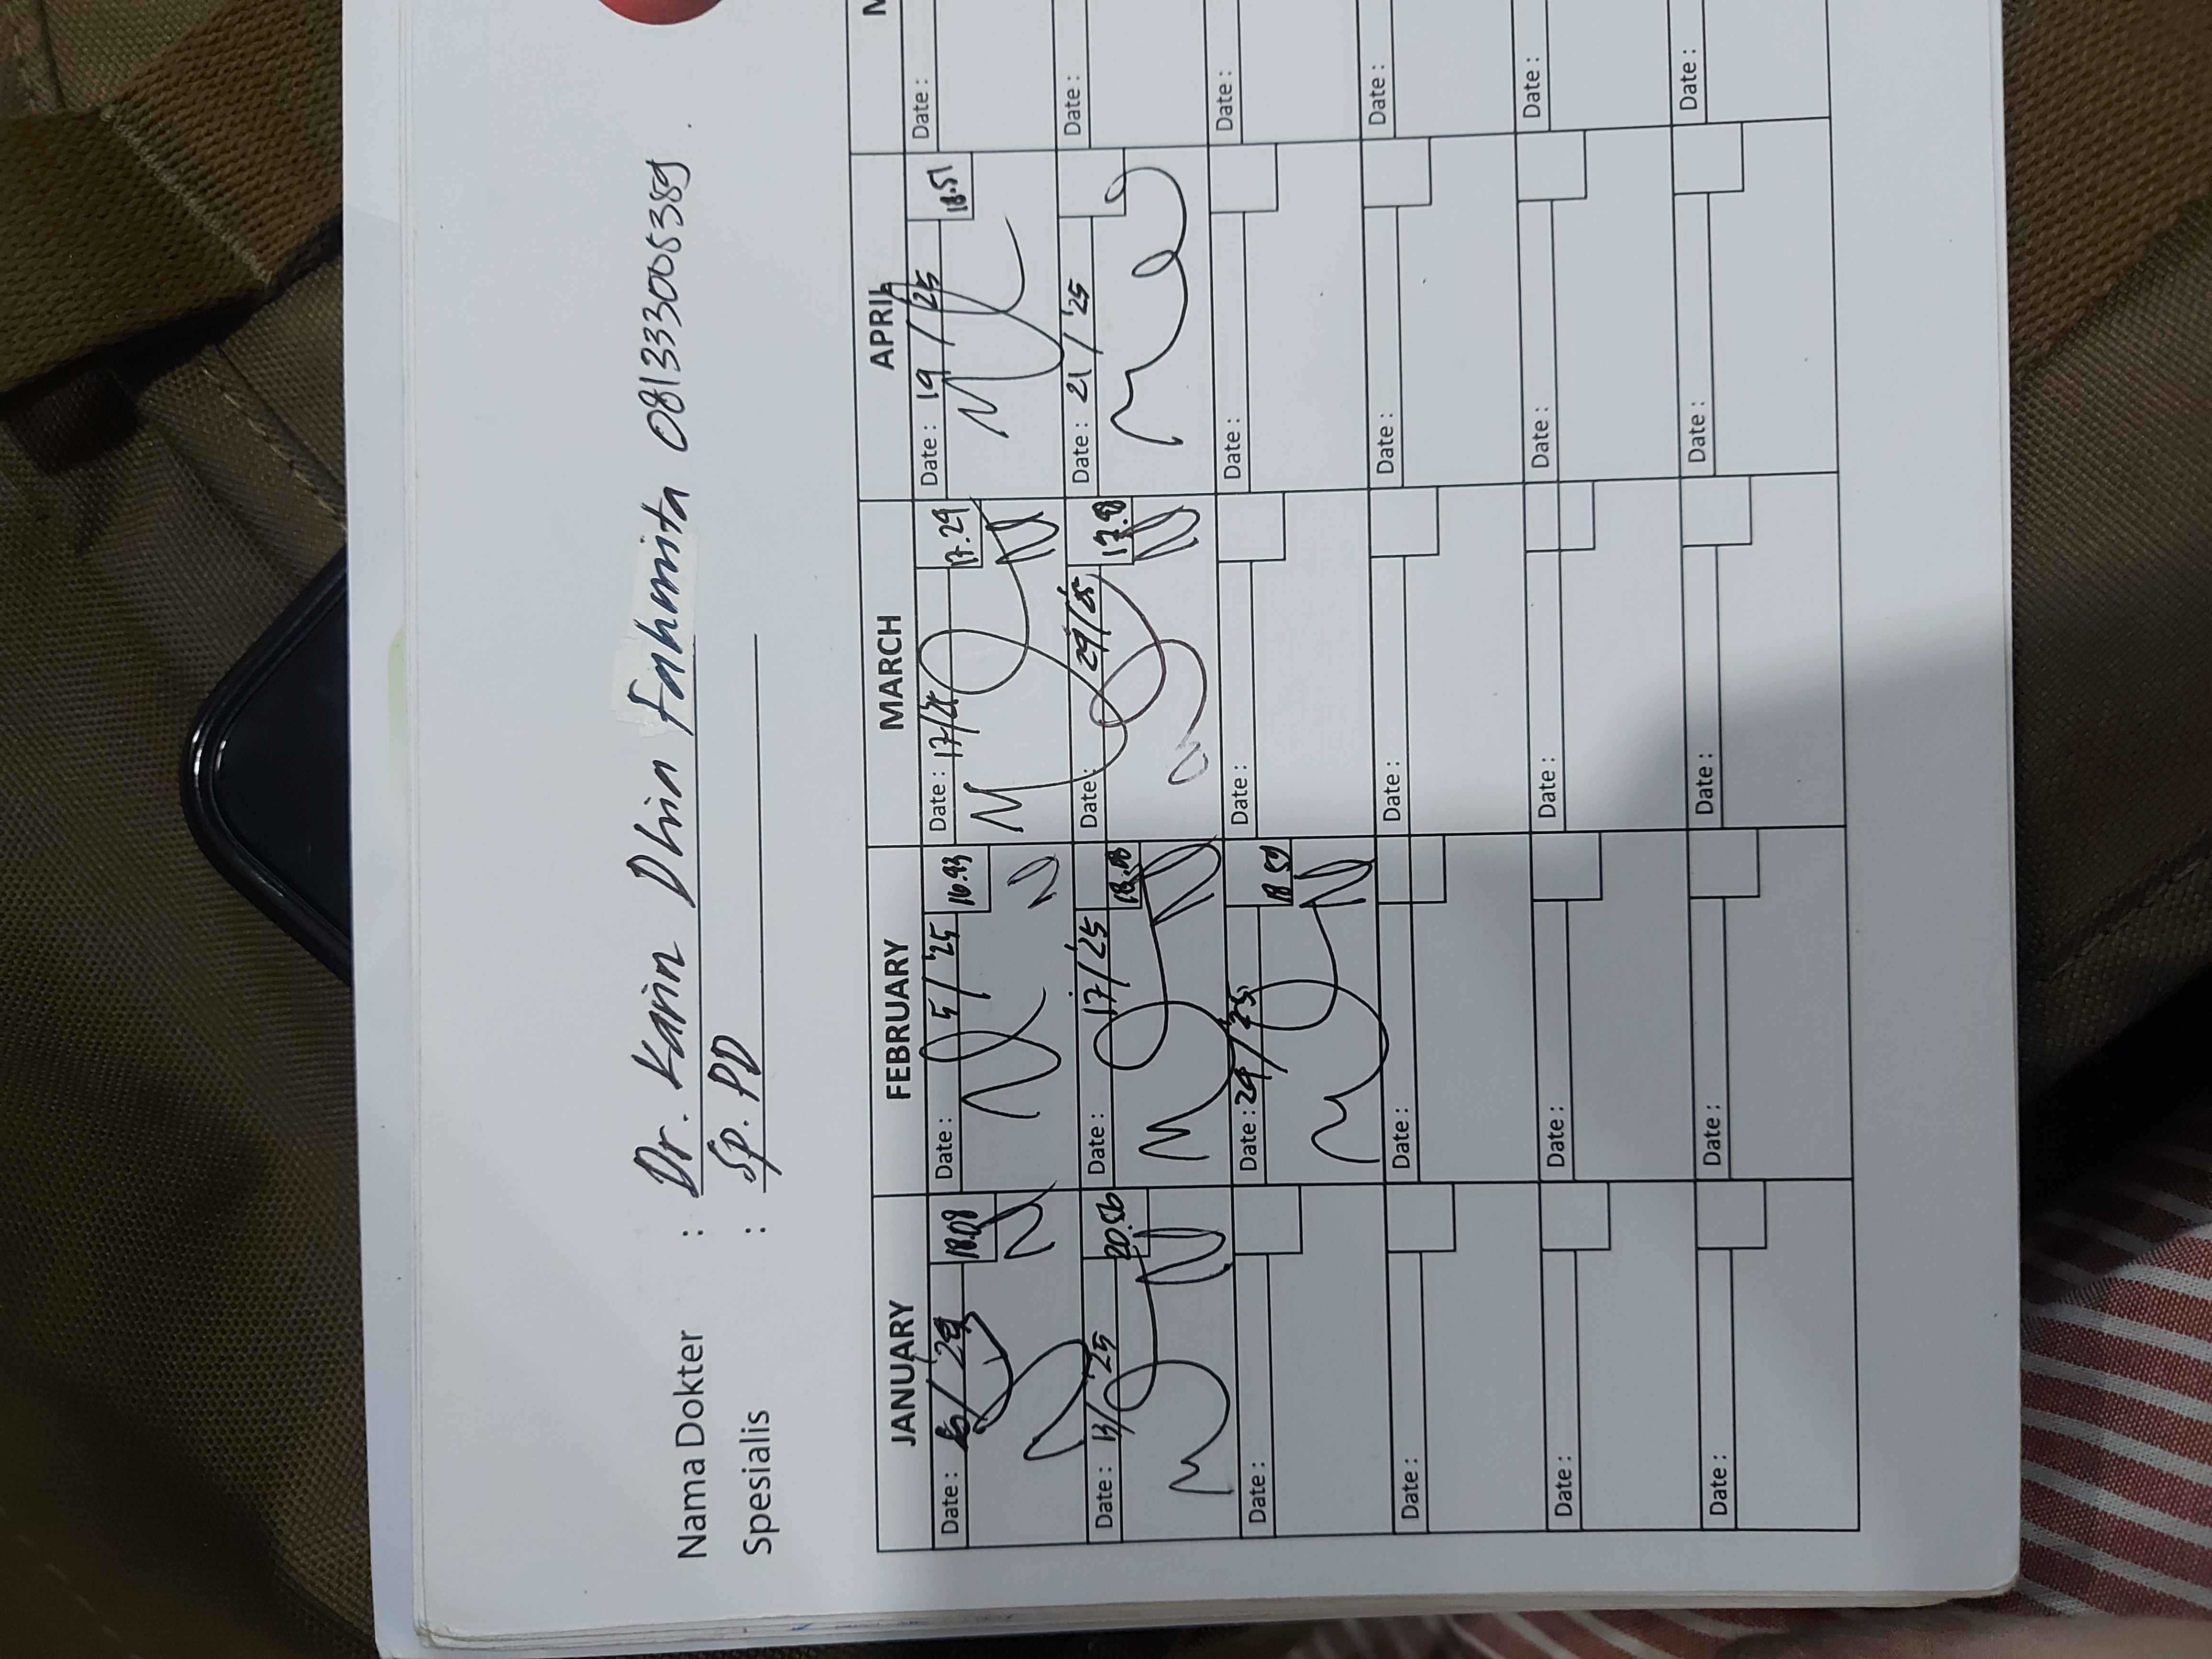 Nama Dokter : Dr. Karin Dhia Fahmita 081333005389
Spesialis : Sp. PD
JANUARY FEBRUARY MARCH APRIL M
Date : 18.08 Date : 5/'25 16.43 Date : 17/25 17.29 Date : 19/'25 18.51 Date :
Date : 13/'25 20.56 Date : 17/'25 Date : 29/25 Date : 21/'25 Date :
Date : Date : 24/'25 18.59 Date : Date : Date :
Date : Date : Date : Date : Date :
Date : Date : Date : Date : Date :
Date : Date : Date : Date : Date :